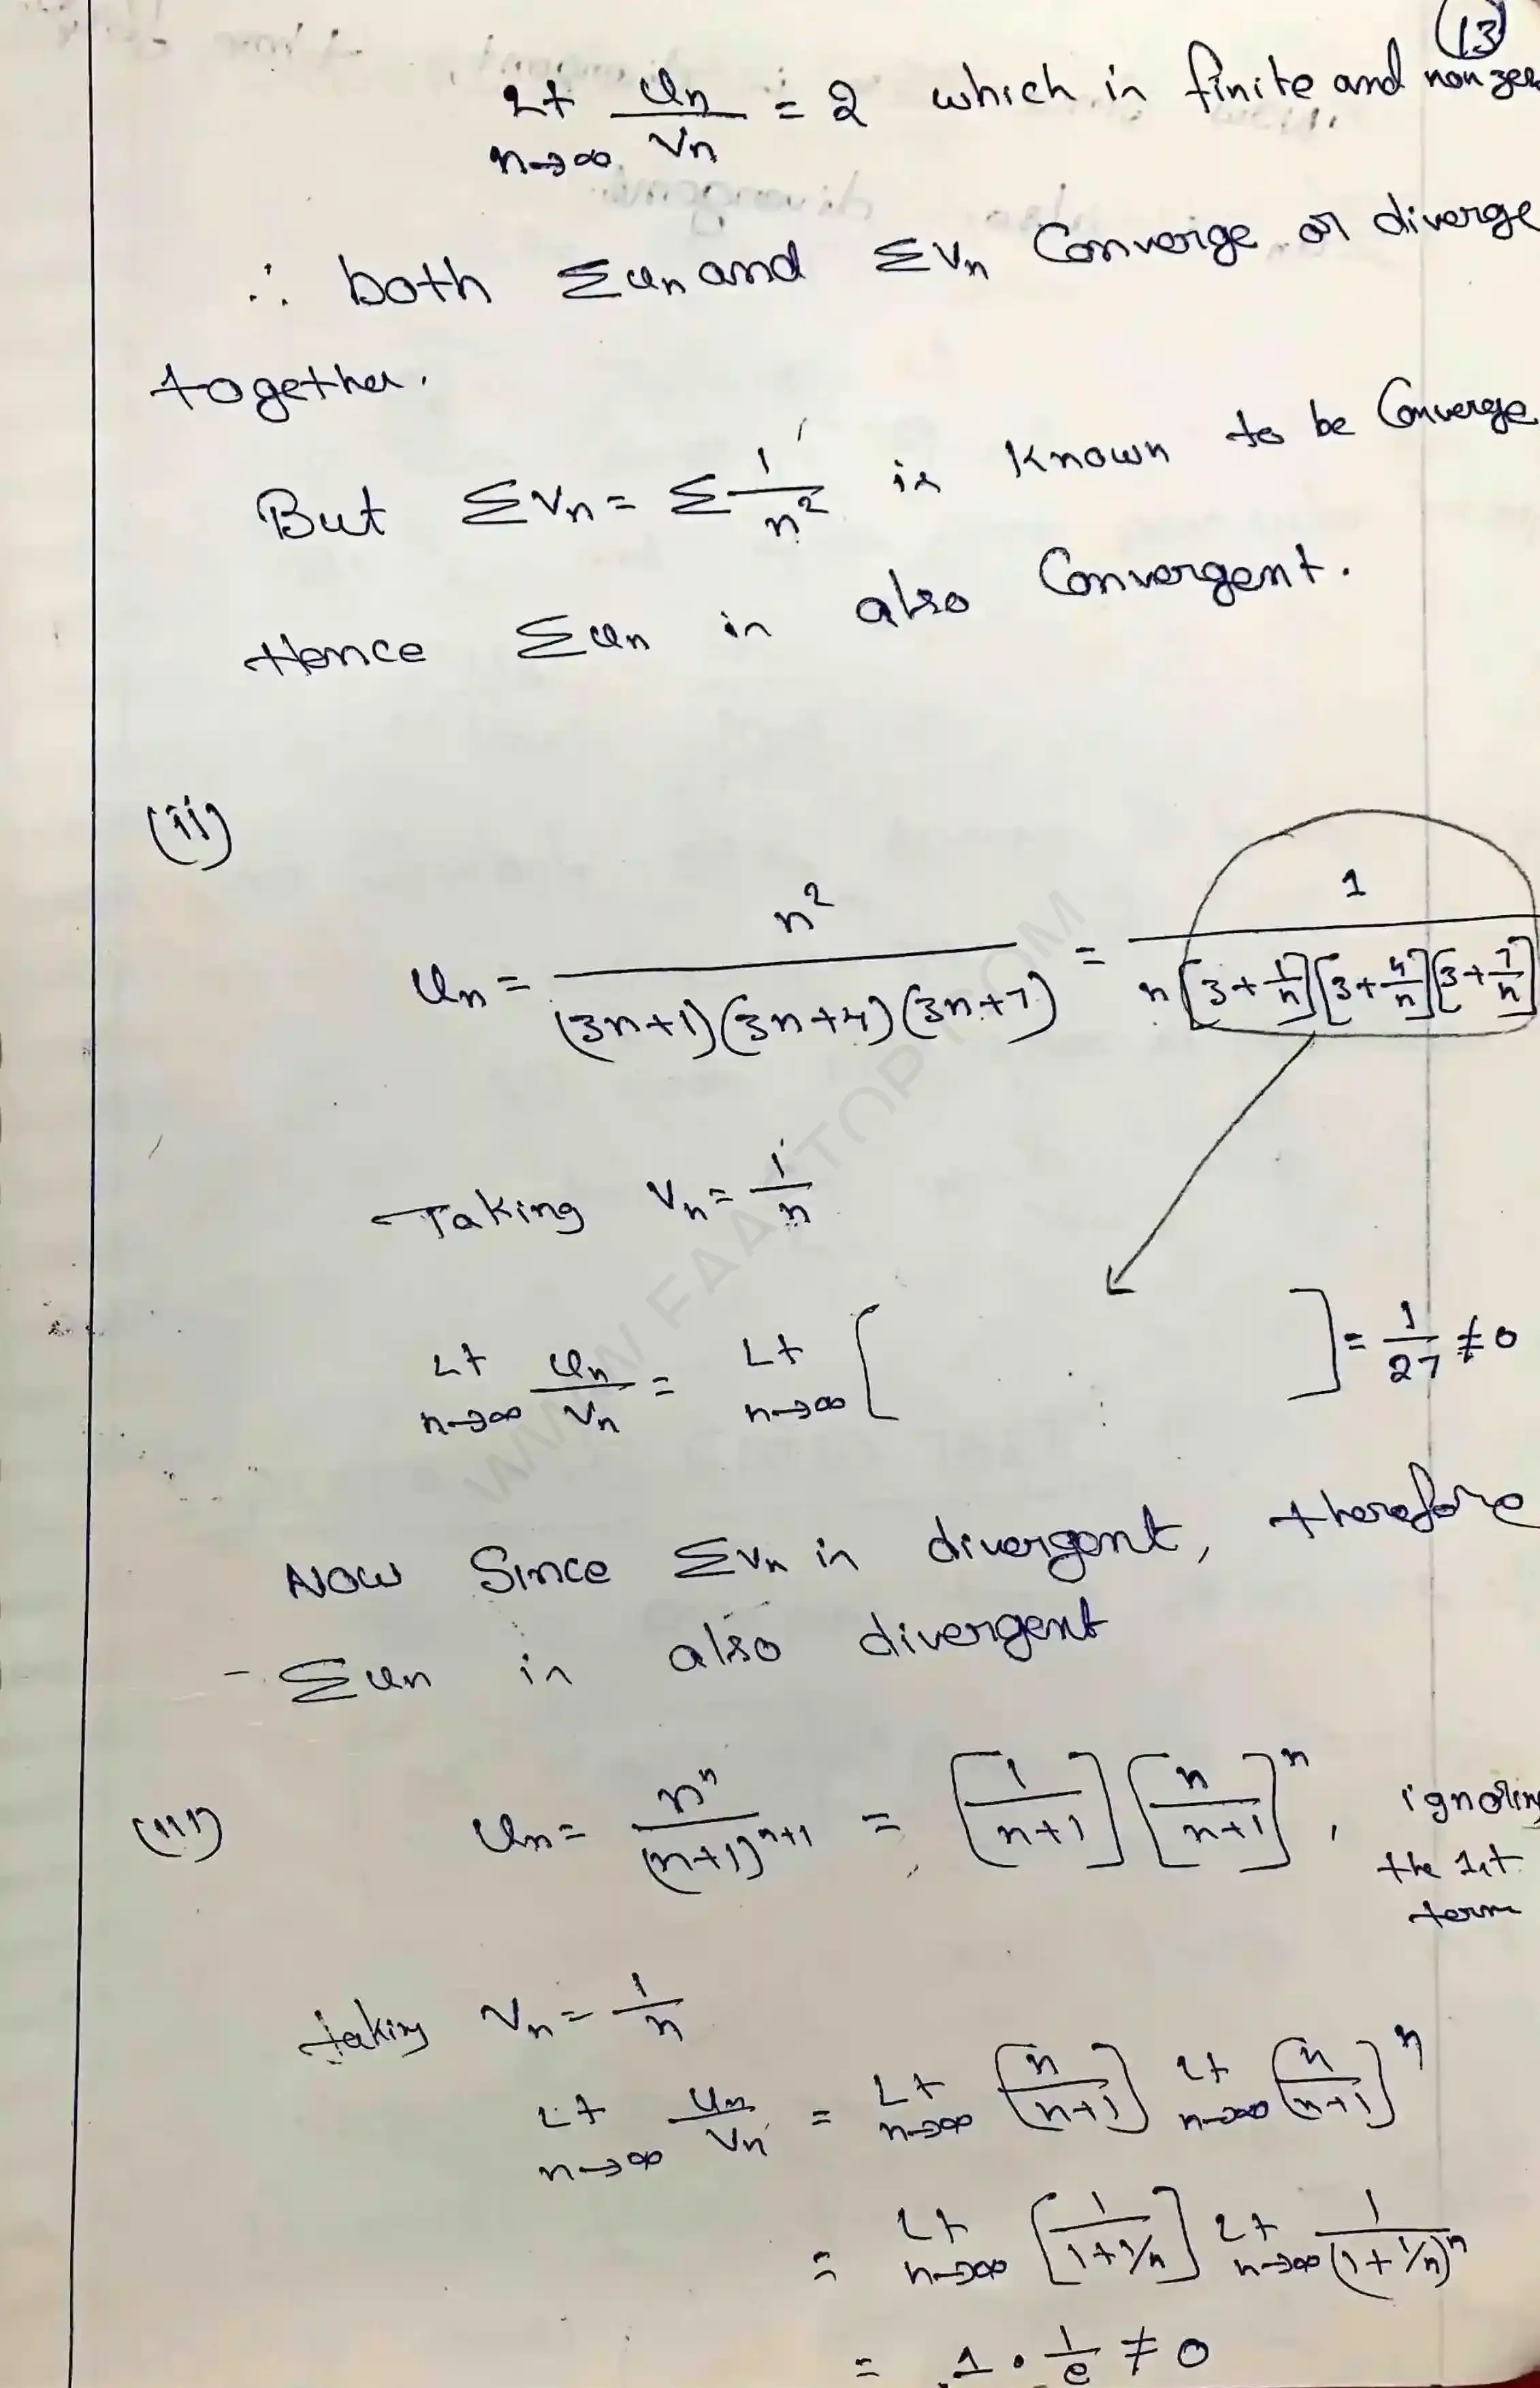 (13)
Lt n→∞ un/vn = 2 which is finite and non zero
∴ both Σun and Σvn Converge or diverge
together.
But Σvn = Σ 1/n² is known to be Converge
Hence Σun is also Convergent.
(ii)
un = n²/((3n+1)(3n+4)(3n+7)) = 1/(n[3+1/n][3+4/n][3+7/n])
Taking vn = 1/n
Lt n→∞ un/vn = Lt n→∞ [ ] = 1/27 ≠ 0
Now Since Σvn is divergent, therefore
Σun is also divergent
(iii) un = nⁿ/(n+1)ⁿ⁺¹ = [1/(n+1)] [n/(n+1)]ⁿ, ignoring
the 1st
term
taking vn = 1/n
Lt n→∞ un/vn = Lt n→∞ [n/(n+1)] Lt n→∞ [n/(n+1)]ⁿ
= Lt n→∞ [1/(1+1/n)] Lt n→∞ 1/(1+1/n)ⁿ
= 1 · 1/e ≠ 0